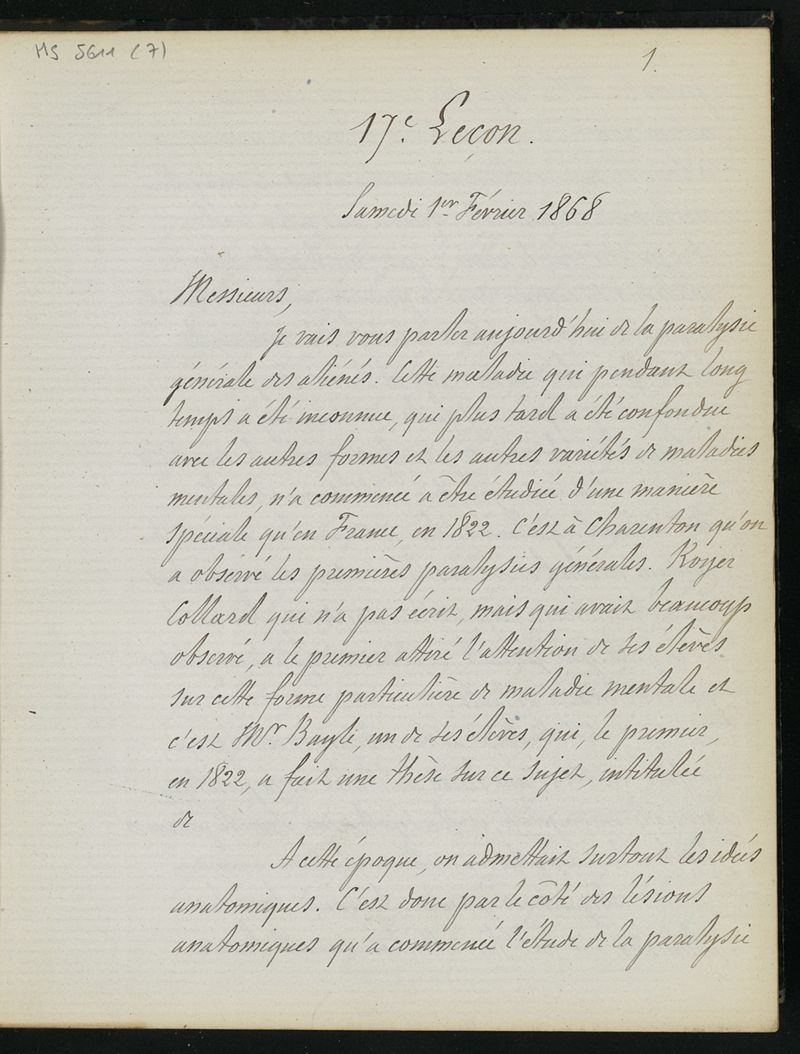 MS 5611 (7)
1.
17e. Leçon.
Samedi 1er Février 1868
Messieurs,
Je vais vous parler aujourd'hui de la paralysie
générale des aliénés. Cette maladie qui pendant long
temps a été inconnue, qui plus tard a été confondue
avec les autres formes et les autres variétés de maladies
mentales, n'a commencé à être étudiée d'une manière
spéciale qu'en France, en 1822. C'est à Charenton qu'on
a observé les premières paralysies générales. Royer
Collard qui n'a pas écrit, mais qui avait beaucoup
observé, a le premier attiré l'attention de ses élèves
sur cette forme particulière de maladie mentale et
c'est Mr. Bayle, un de ses élèves, qui, le premier,
en 1822, a fait une thèse sur ce sujet, intitulée
de
A cette époque, on admettait surtout les idées
anatomiques. C'est donc par le côté des lésions
anatomiques qu'a commencé l'étude de la paralysie